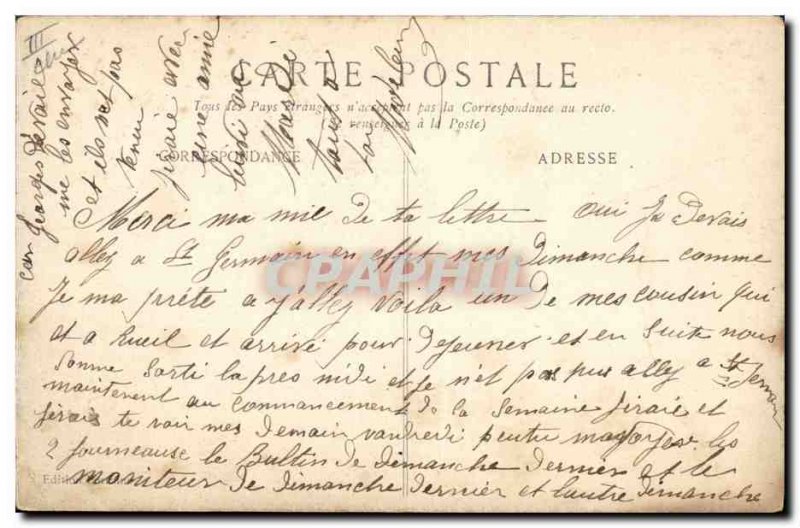 CARTE POSTALE
Tous les Pays étrangers n'acceptent pas la Correspondance au recto.
(se renseigner à la Poste)
CORRESPONDANCE
ADRESSE
Merci ma mie De ta lettre oui Je Devais
alley a St Germain en effet mes Dimanche comme
Je ma prête a y alley voila un De mes cousin qui
et a Rueil et arrivé pour Dejeuner et en suite nous
somme sorti lapres midi et je n'et pas pus alley a St Jermain
maintenent au commancement De la semaine Jiraie et
Jirais te voir mes Demain vandredi peutu les
2 journeause le Bultin De Dimanche Dernier et le
moniteur De Dimanche Dernier et lautre Dimanche
car Georges Devait
me les envoyer
et ils net pas
venu
Jiraie avec
une amie
Edition
CPAPHIL